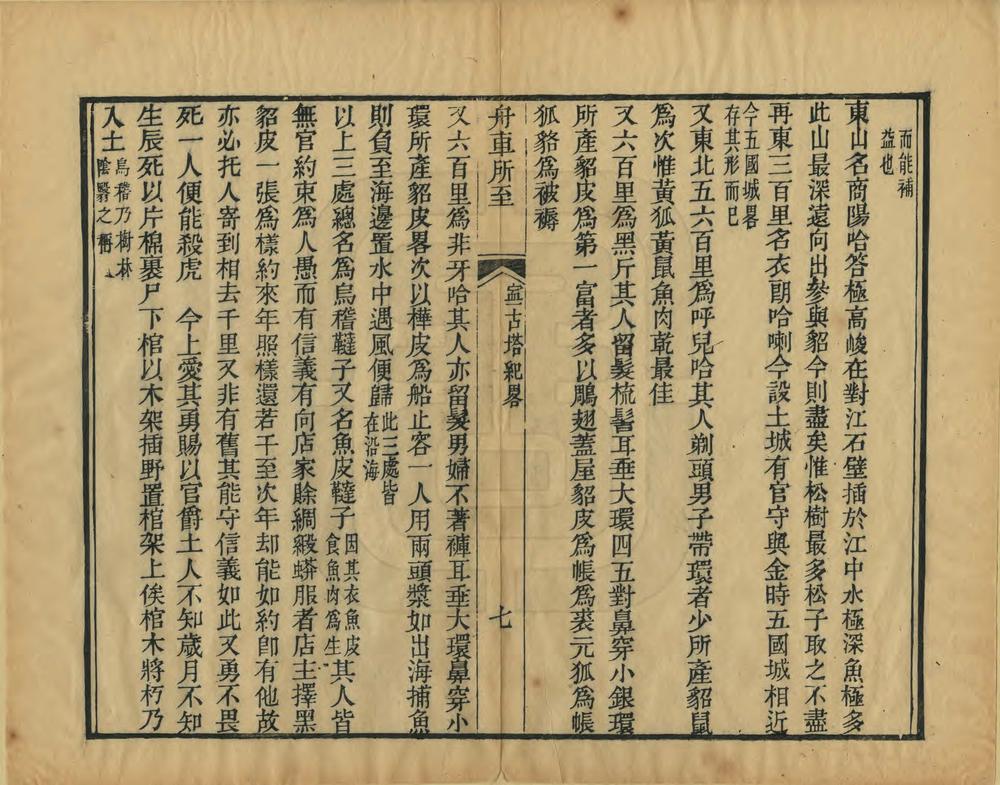 而能補
益也
東山名商陽哈答極高峻在對江石壁插於江中水極深魚極多
此山最深遠向出參與貂今則盡矣惟松樹最多松子取之不盡
再東三百里名衣朗哈喇今設土城有官守與金時五國城相近
今五國城畧
存其形而已
又東北五六百里爲呼兒哈其人剃頭男子帶環者少所產貂鼠
爲次惟黃狐黃鼠魚肉乾最佳
又六百里爲黑斤其人留髮梳髻耳垂大環四五對鼻穿小銀環
所產貂皮爲第一富者多以鵰翅蓋屋貂皮爲帳爲裘元狐爲帳
狐貉爲被褥
舟車所至 寧古塔紀畧 七
又六百里爲非牙哈其人亦留髮男婦不著褲耳垂大環鼻穿小
環所產貂皮畧次以樺皮爲船止容一人用兩頭槳如出海捕魚
則負至海邊置水中遇風便歸此三處皆在沿海
以上三處總名爲烏稽韃子又名魚皮韃子因其衣魚皮食魚肉爲生其人皆
無官約束爲人愚而有信義有向店家賒綢緞蟒服者店主擇黑
貂皮一張爲樣約來年照樣還若干至次年却能如約卽有他故
亦必托人寄到相去千里又非有舊其能守信義如此又勇不畏
死一人便能殺虎 今上愛其勇賜以官爵土人不知歲月不知
生辰死以片棉裹尸下棺以木架插野置棺架上俟棺木將朽乃
入土烏稽乃樹林陰翳之稱